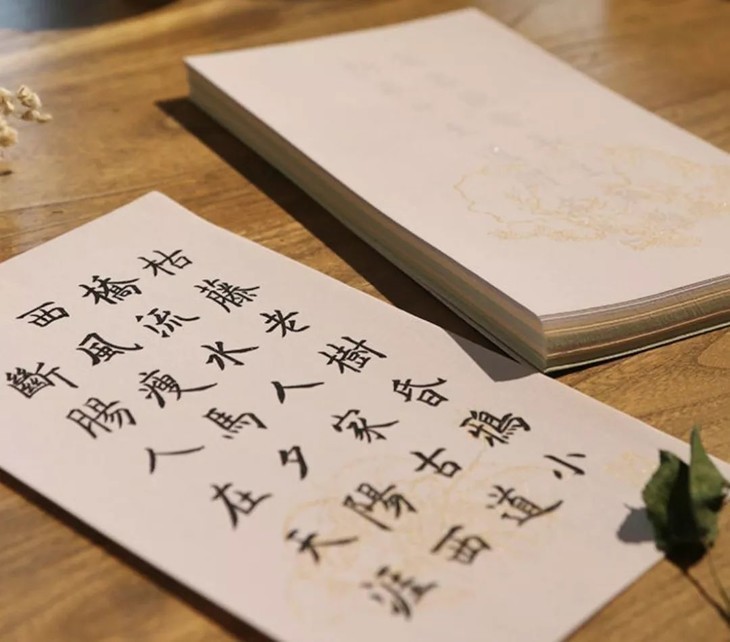 枯藤老樹昏鴉小
橋流水人家古道
西風瘦馬夕陽西
斷腸人在天涯